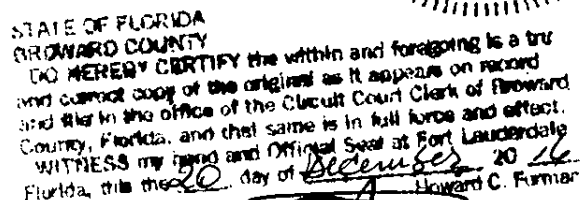 STATE OF FLORIDA
BROWARD COUNTY
DO HEREBY CERTIFY the within and foregoing is a tru
and correct copy of the original as it appears on record
and file in the office of the Circuit Court Clerk of Broward
County, Florida, and that same is in full force and effect.
WITNESS my hand and Official Seal at Fort Lauderdale
Florida, this the 20 day of December 20 16
Howard C. Forman